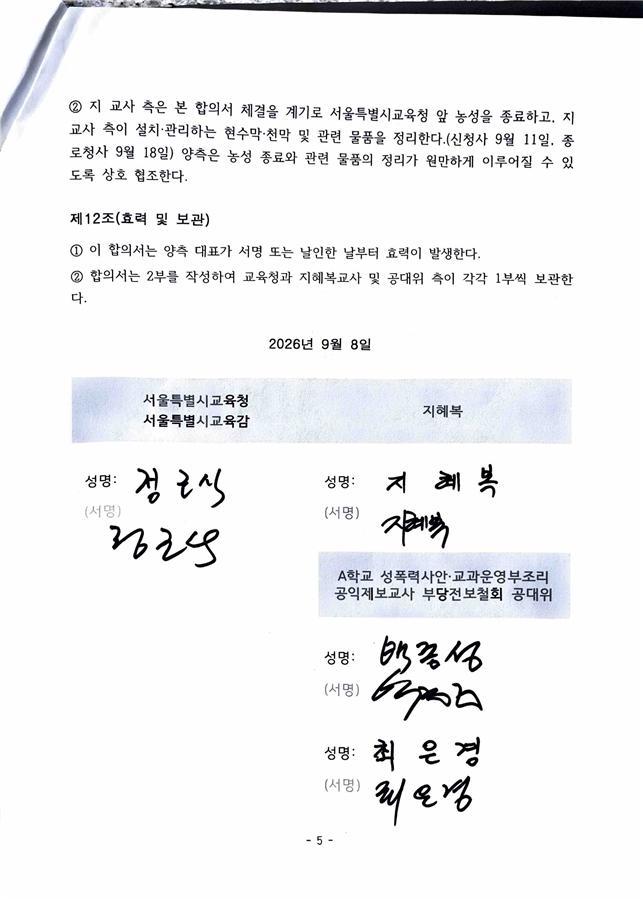 ② 지 교사 측은 본 합의서 체결을 계기로 서울특별시교육청 앞 농성을 종료하고, 지
교사 측이 설치·관리하는 현수막·천막 및 관련 물품을 정리한다.(신청사 9월 11일, 종
로청사 9월 18일) 양측은 농성 종료와 관련 물품의 정리가 원만하게 이루어질 수 있
도록 상호 협조한다.
제12조(효력 및 보관)
① 이 합의서는 양측 대표가 서명 또는 날인한 날부터 효력이 발생한다.
② 합의서는 2부를 작성하여 교육청과 지혜복교사 및 공대위 측이 각각 1부씩 보관한
다.
2026년 9월 8일
서울특별시교육청
서울특별시교육감
지혜복
성명: 정근식
(서명)
성명: 지혜복
(서명) 지혜복
A학교 성폭력사안·교과운영부조리
공익제보교사 부당전보철회 공대위
성명: 백종성
(서명)
성명: 최은경
(서명) 최은경
- 5 -